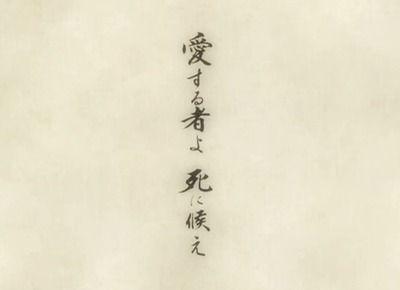 愛する者よ 死に候え